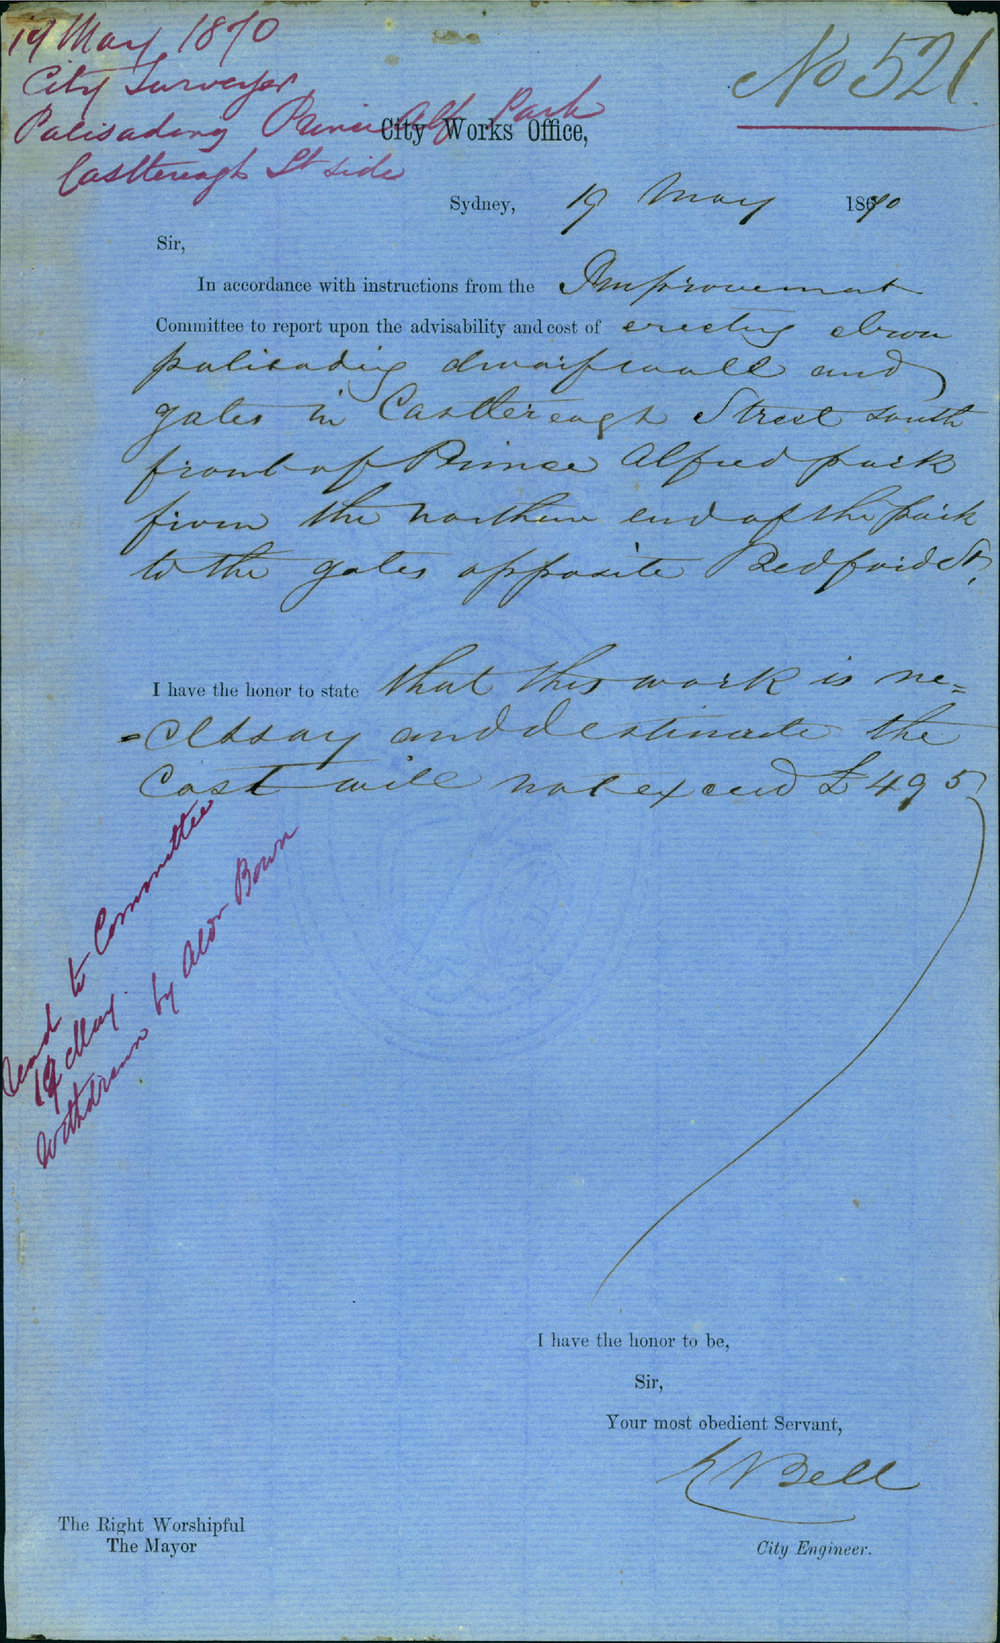 19 May 1870
City Surveyor
Palisading Prince Alf Park
Castlereagh St side
No 521.
City Works Office,
Sydney, 19 May 1870
Sir,
In accordance with instructions from the Improvement
Committee to report upon the advisability and cost of erecting iron
palisading dwarf wall and
gates in Castlereagh Street south
front of Prince Alfred park
from the northern end of the park
to the gates opposite Bedford St,
I have the honor to state that this work is ne=
=cessary and estimate the
Cost will not exceed £495
Read to Committee
19 May.
Withdrawn by Aldn Bown
I have the honor to be,
Sir,
Your most obedient Servant,
E Bell
City Engineer.
The Right Worshipful
The Mayor